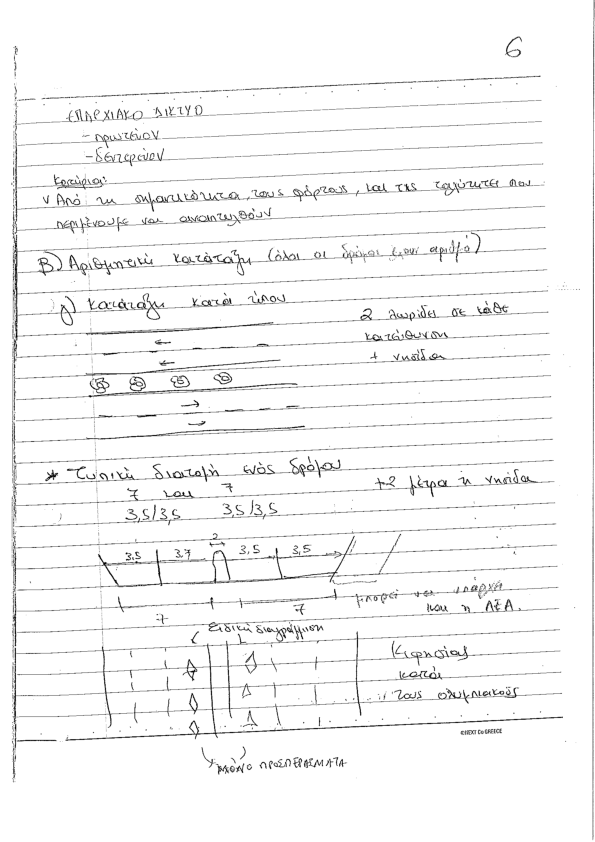 6
ΕΠΑΡΧΙΑΚΟ ΔΙΚΤΥΟ
- πρωτεύον
- δευτερεύον
Κριτήρια:
Από τη σημαντικότητα, τους φόρτους, και της ταχύτητες που
περιμένουμε να αναπτυχθούν
Β) Αριθμητική κατάταξη (όλοι οι δρόμοι έχουν αριθμό)
γ) κατάταξη κατά τύπου
2 λωρίδες σε κάθε
κατεύθυνση
+ νησίδα
* Τυπική διατομή ενός δρόμου
7 και 7
+2 μέτρα η νησίδα
3,5/3,5 3,5/3,5
3,5 3,7 2 3,5 3,5
7 7
μπορεί να υπάρχει
και η ΛΕΑ.
Ειδική διαγράμμιση
Κηφησίας
κατά
τους ολυμπιακούς
©NEXT Co GREECE
ΜΟΝΟ ΠΡΟΣΠΕΡΑΣΜΑΤΑ